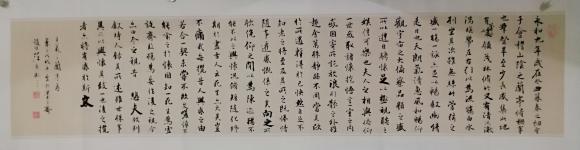 永和九年歲在癸丑暮春之初會
于會稽山陰之蘭亭脩禊事
也羣賢畢至少長咸集此地
有崇山峻領茂林脩竹又有清流激
湍暎帶左右引以為流觴曲水
列坐其次雖無絲竹管絃之
盛一觴一詠亦足以暢敘幽情
是日也天朗氣清惠風和暢仰
觀宇宙之大俯察品類之盛
所以遊目騁懷足以極視聽之
娛信可樂也夫人之相與俯仰
一世或取諸懷抱悟言一室之內
或因寄所託放浪形骸之外雖
趣舍萬殊靜躁不同當其欣
於所遇暫得於己快然自足不
知老之將至及其所之既惓情
隨事遷感慨係之矣向之所
欣俛仰之間以為陳迹猶不
能不以之興懷況脩短隨化終
期於盡古人云死生亦大矣豈
不痛哉每攬昔人興感之由
若合一契未嘗不臨文嗟悼不
能喻之於懷固知一死生為虛
誕齊彭殤為妄作後之視今
亦由今之視昔悲夫故列
敘時人錄其所述雖世殊事
異所以興懷其致一也後之攬
者亦將有感於斯文